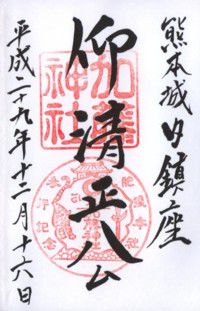 熊本城内鎮座
仰清正公
加藤神社
平成二十九年十二月十六日